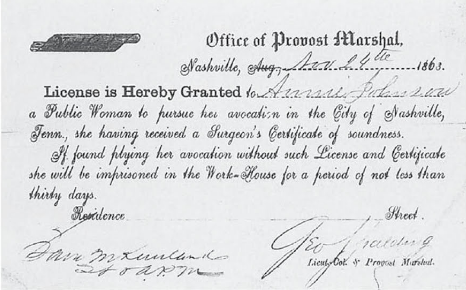 Office of Provost Marshal,
Nashville, Aug. Nov 24th 1863.
License is Hereby Granted to Annie Johnson
a Public Woman to pursue her avocation in the City of Nashville,
Tenn., she having received a Surgeon's Certificate of soundness.
If found plying her avocation without such License and Certificate
she will be imprisoned in the Work-House for a period of not less than
thirty days.
Residence Street.
Geo Spalding
Lieut. Col. & Provost Marshal.